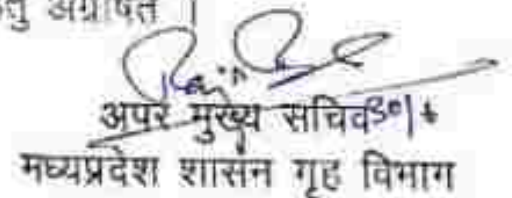 हेतु अग्रेषित ।
अपर मुख्य सचिव
मध्यप्रदेश शासन गृह विभाग